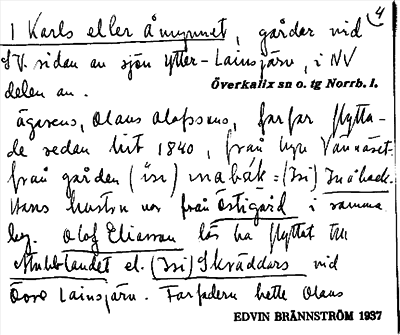 4
1 Karls eller Åmynnet, gårdar vid
SV. sidan av sjön Ytter-Lainsjärv, i NV
delen av.
Överkalix sn o. tg Norrb. l.
ägarens, Olaus Olofssons, farfar flytta-
de redan hit 1840, från byn Vännäset
från gården (isi) inabák = (Isi) Inåbäck.
Hans hustru var från Östigård i samma
by. Olof Eliasson lär ha flyttat till
Stubblandet el. (Isi) Skräddars vid
Övre Lainsjärv. Farfadern hette Olaus
EDVIN BRÄNNSTRÖM 1937